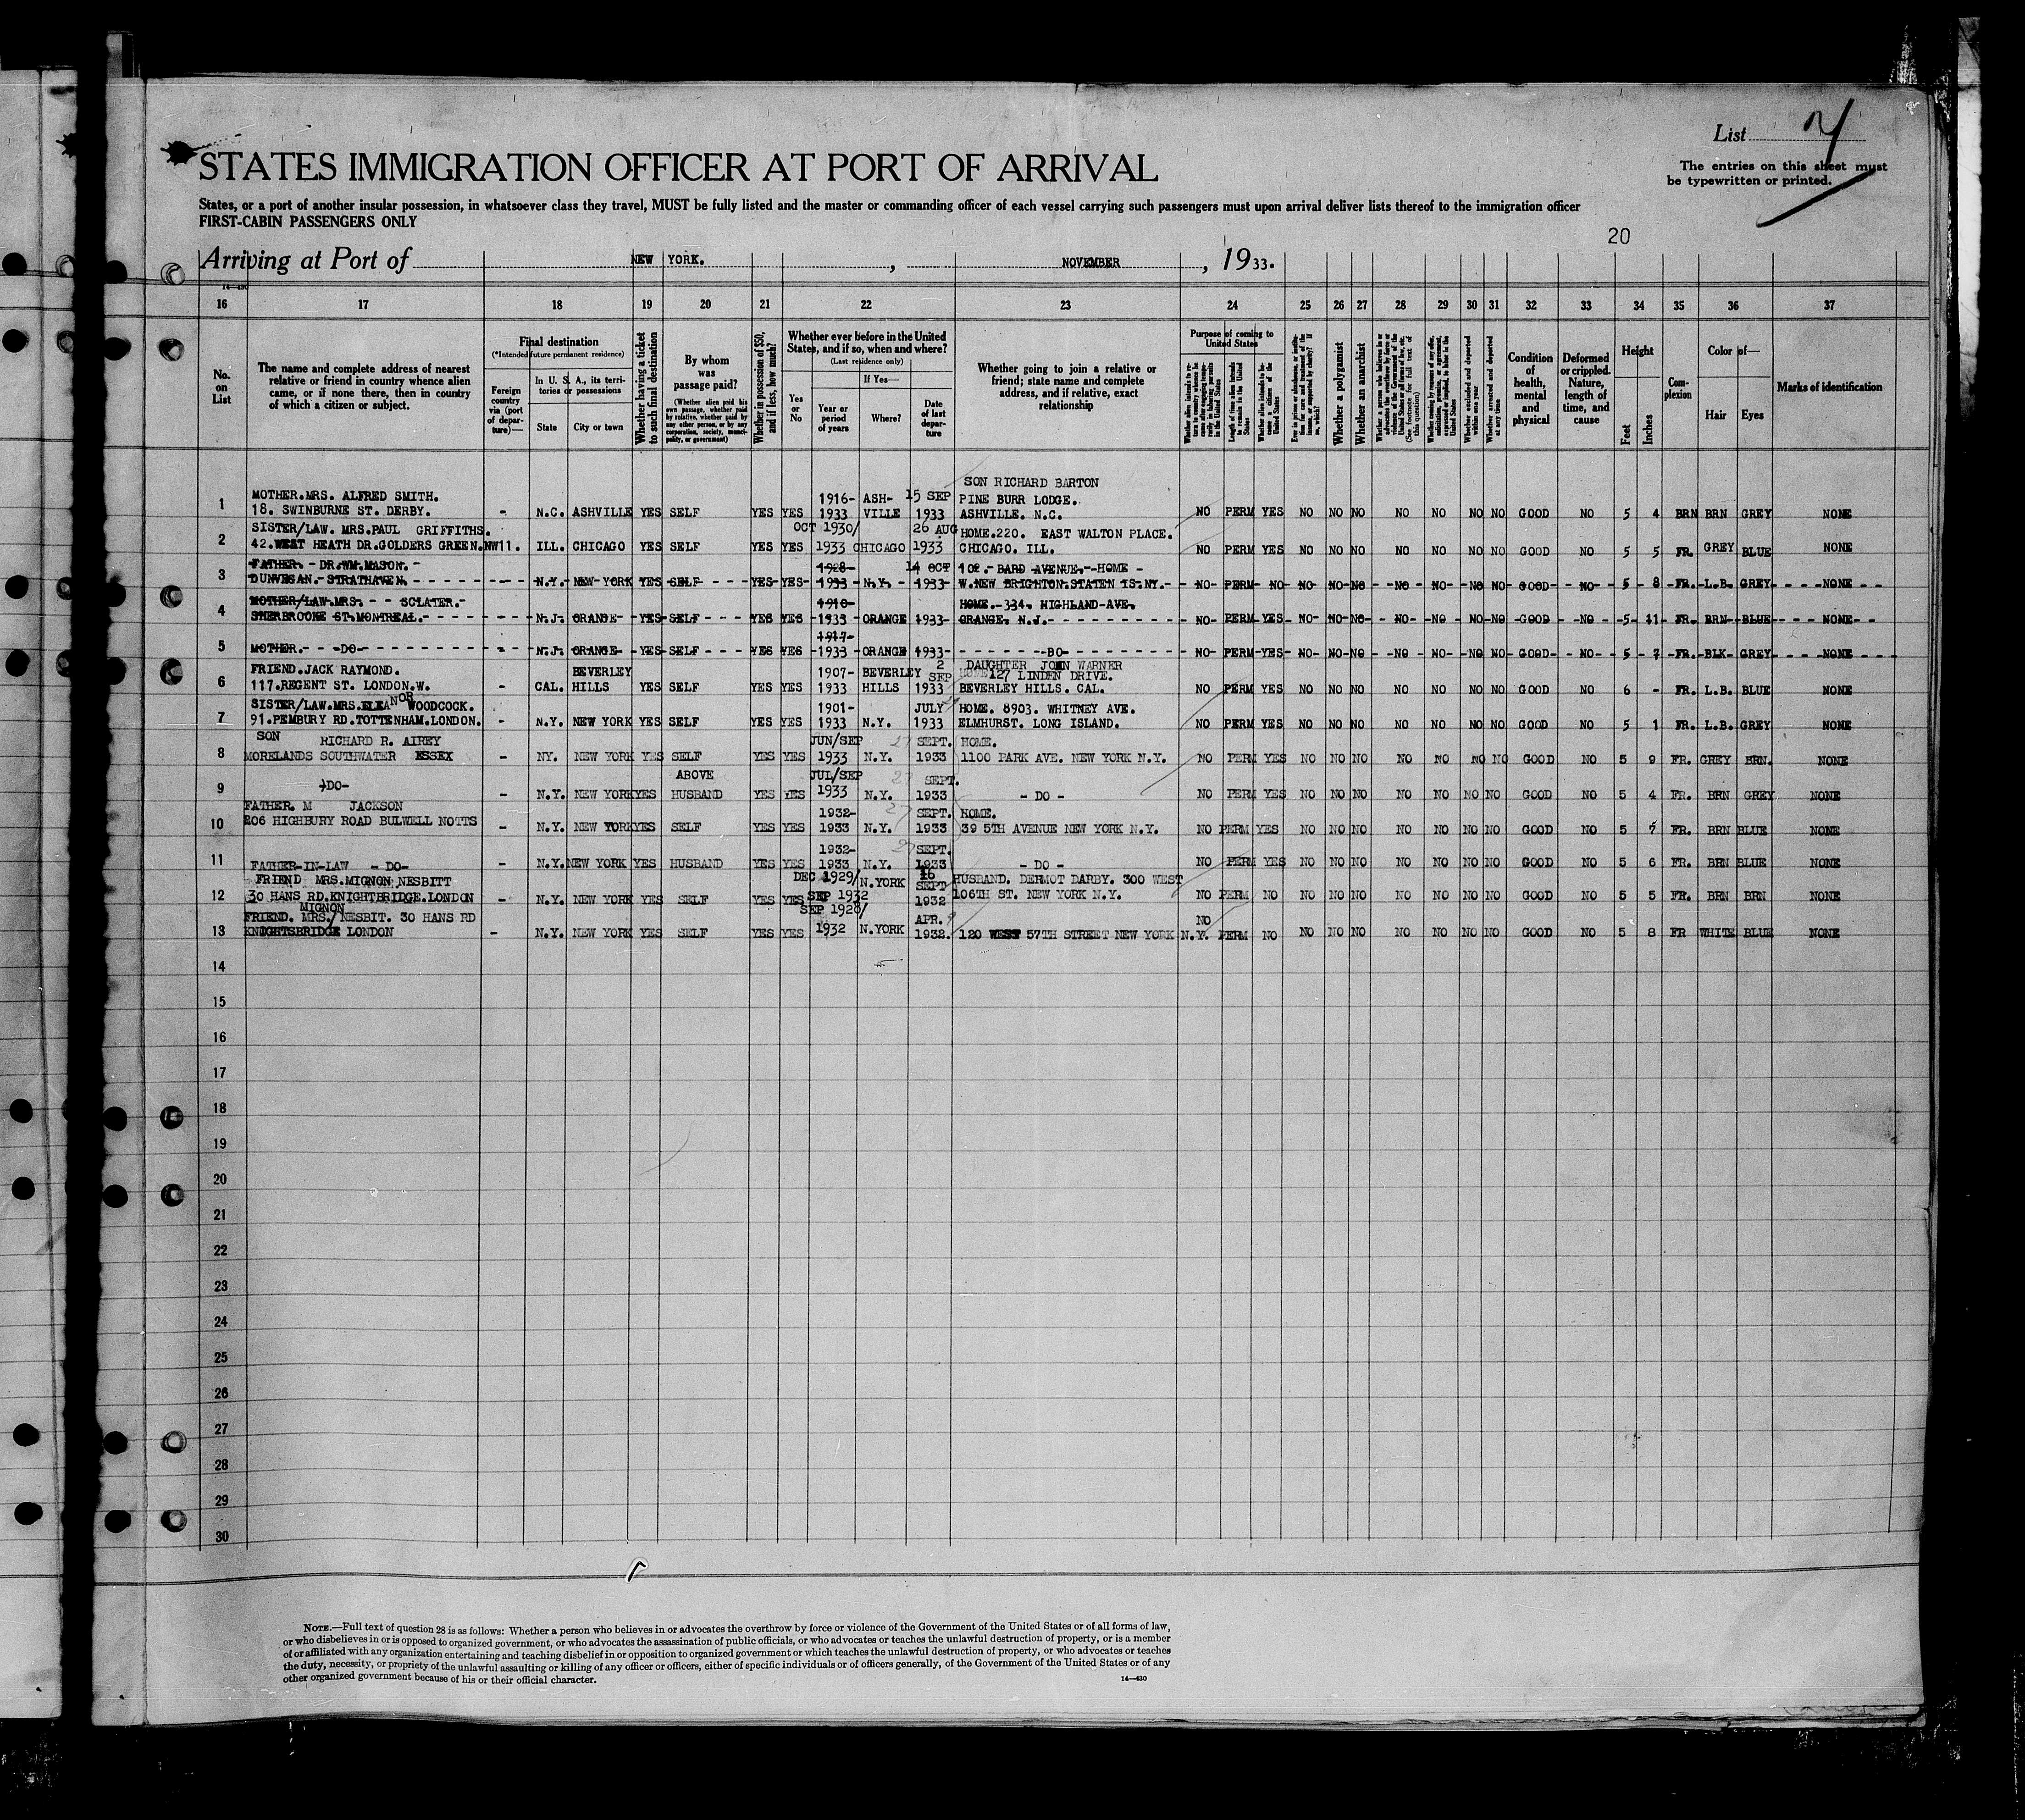 List
STATES IMMIGRATION OFFICER AT PORT OF ARRIVAL
The entries on this sheet must
be typewritten or printed.
States, or a port of another insular possession, in whatsoever class they travel, MUST be fully listed and the master or commanding officer of each vessel carrying such passengers must upon arrival deliver lists thereof to the immigration officer
FIRST-CABIN PASSENGERS ONLY
20
Arriving at Port of NEW YORK. , NOVEMBER , 1933.
16 17 18 19 20 21 22 23 24 25 26 27 28 29 30 31 32 33 34 35 36 37
No. on List
The name and complete address of nearest relative or friend in country whence alien came, or if none there, then in country of which a citizen or subject.
Final destination
(*Intended future permanent residence)
Foreign country via (port of departure)—
In U. S. A., its territories or possessions
State
City or town
Whether having a ticket to such final destination
By whom was passage paid?
(Whether alien paid his own passage, whether paid by relative, whether paid by any other person, or by any corporation, society, municipality, or government)
Whether in possession of $50, and if less, how much?
Whether ever before in the United States, and if so, when and where?
(Last residence only)
Yes or No
If Yes—
Year or period of years
Where?
Date of last departure
Whether going to join a relative or friend; state name and complete address, and if relative, exact relationship
Purpose of coming to United States
Length of time alien intends to remain in the United States
Whether alien intends to become a citizen of the United States
Whether a polygamist
Whether an anarchist
(See footnote for full text of this question)
Whether excluded and deported within one year
Whether arrested and deported at any time
Condition of health, mental and physical
Deformed or crippled. Nature, length of time, and cause
Height
Feet
Inches
Complexion
Color of—
Hair
Eyes
Marks of identification
1 MOTHER.MRS. ALFRED SMITH. 18. SWINBURNE ST. DERBY. - N.C. ASHVILLE YES SELF YES YES 1916-1933 ASH-VILLE 15 SEP 1933 SON RICHARD BARTON PINE BURR LODGE. ASHVILLE. N.C. NO PERM YES NO NO NO NO NO NO NO GOOD NO 5 4 BRN BRN GREY NONE
2 SISTER/LAW. MRS.PAUL GRIFFITHS. 42.WEST HEATH DR.GOLDERS GREEN.NW11. ILL. CHICAGO YES SELF YES YES OCT 1930/ 1933 CHICAGO 26 AUG 1933 HOME.220. EAST WALTON PLACE. CHICAGO. ILL. NO PERM YES NO NO NO NO NO NO NO GOOD NO 5 5 FR. GREY BLUE NONE
3 FATHER. - DR.WM.MASON. - DUNVEGAN. - STRATHAVEN. - N.Y. NEW YORK YES SELF YES YES 1928-1933 N.Y. 14 OCT 1933 102. BARD AVENUE. HOME - W.NEW BRIGHTON.STATEN IS.NY. NO PERM NO NO NO NO NO NO NO NO GOOD NO 5 8 FR. L.B. GREY NONE
4 MOTHER/LAW.MRS. SCLATER. SHERBROOKE ST.MONTREAL. - N.J. ORANGE YES SELF YES YES 1910-1933 ORANGE 1933 HOME. 334. HIGHLAND AVE. ORANGE. N.J. NO PERM YES NO NO NO NO NO NO NO GOOD NO 5 11 FR. BRN BLUE NONE
5 MOTHER. -DO- - N.J. ORANGE YES SELF YES YES 1917-1933 ORANGE 1933 -DO- NO PERM YES NO NO NO NO NO NO NO GOOD NO 5 7 FR. BLK GREY NONE
6 FRIEND.JACK RAYMOND. 117.REGENT ST. LONDON.W. - CAL. BEVERLEY HILLS YES SELF YES YES 1907-1933 BEVERLEY HILLS 2 SEP 1933 DAUGHTER JOAN WARNER 127 LINDEN DRIVE. BEVERLEY HILLS. CAL. NO PERM YES NO NO NO NO NO NO NO GOOD NO 6 - FR. L.B. BLUE NONE
7 SISTER/LAW.MRS.ELEANOR WOODCOCK. 91.PEMBURY RD.TOTTENHAM.LONDON. - N.Y. NEW YORK YES SELF YES YES 1901-1933 N.Y. JULY 1933 HOME. 8903. WHITNEY AVE. ELMHURST. LONG ISLAND. NO PERM YES NO NO NO NO NO NO NO GOOD NO 5 1 FR. L.B. GREY NONE
8 SON RICHARD R. AIREY MORELANDS SOUTHWATER ESSEX - NY. NEW YORK YES SELF YES YES JUN/SEP 1933 N.Y. 27 SEPT. 1933 HOME. 1100 PARK AVE. NEW YORK N.Y. NO PERM YES NO NO NO NO NO NO NO GOOD NO 5 9 FR. GREY BRN. NONE
9 -DO- - N.Y. NEW YORK YES ABOVE HUSBAND YES YES JUL/SEP 1933 N.Y. 27 SEPT. 1933 - DO - NO PERM YES NO NO NO NO NO NO NO GOOD NO 5 4 FR. BRN GREY NONE
10 FATHER. M JACKSON 206 HIGHBURY ROAD BULWELL NOTTS - N.Y. NEW YORK YES SELF YES YES 1932-1933 N.Y. 27 SEPT. 1933 HOME. 39 5TH AVENUE NEW YORK N.Y. NO PERM YES NO NO NO NO NO NO NO GOOD NO 5 7 FR. BRN BLUE NONE
11 FATHER-IN-LAW - DO- - N.Y. NEW YORK YES HUSBAND YES YES 1932-1933 N.Y. 27 SEPT. 1933 - DO - NO PERM YES NO NO NO NO NO NO NO GOOD NO 5 6 FR. BRN BLUE NONE
12 FRIEND MRS.MIGNON NESBITT 30 HANS RD.KNIGHTBRIDGE.LONDON - N.Y. NEW YORK YES SELF YES YES DEC 1929/ SEP 1932 N.YORK 16 SEPT 1932 HUSBAND. DERMOT DARBY. 300 WEST 106TH ST. NEW YORK N.Y. NO PERM NO NO NO NO NO NO NO NO GOOD NO 5 5 FR. BRN BRN NONE
13 FRIEND. MRS./MIGNON NESBIT. 30 HANS RD KNIGHTSBRIDGE LONDON - N.Y. NEW YORK YES SELF YES YES SEP 1928/ 1932 N.YORK APR. 1932. 120 WEST 57TH STREET NEW YORK N.Y. NO PERM NO NO NO NO NO NO NO NO GOOD NO 5 8 FR WHITE BLUE NONE
14
15
16
17
18
19
20
21
22
23
24
25
26
27
28
29
30
NOTE.—Full text of question 28 is as follows: Whether a person who believes in or advocates the overthrow by force or violence of the Government of the United States or of all forms of law,
or who disbelieves in or is opposed to organized government, or who advocates the assassination of public officials, or who advocates or teaches the unlawful destruction of property, or is a member
of or affiliated with any organization entertaining and teaching disbelief in or opposition to organized government or which teaches the unlawful destruction of property, or who advocates or teaches
the duty, necessity, or propriety of the unlawful assaulting or killing of any officer or officers, either of specific individuals or of officers generally, of the Government of the United States or of any
other organized government because of his or their official character.
14—430